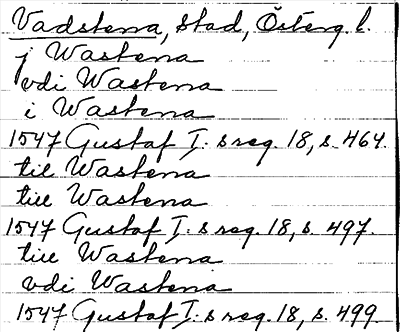 Vadstena, stad, Österg. l.
j Wastena
vdi Wastena
i Wastena
1547 Gustaf I:s reg. 18, s. 464.
til Wastena
till Wastena
1547 Gustaf I:s reg. 18, s. 497.
till Wastena
vdi Wastena
1547 Gustaf I:s reg. 18, s. 499